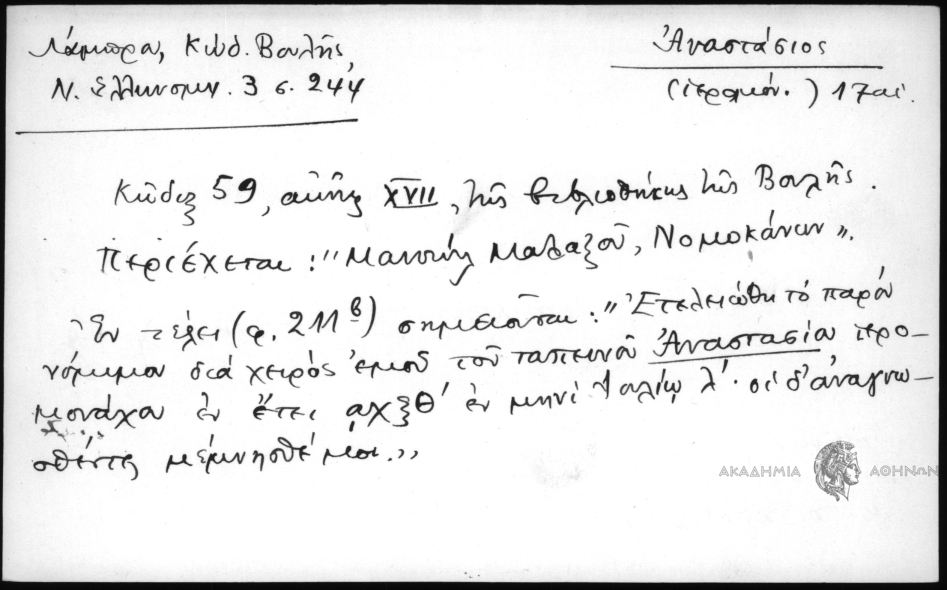 Λάμπρα, Κώδ. Βουλῆς,
Ν. Ἑλληνομν. 3 σ. 244
Ἀναστάσιος
(ἱερομόν.) 17 αἰ.
Κῶδιξ 59, αἰών XVII, τῆς βιβλιοθήκης τῆς Βουλῆς.
Περιέχεται: "Μανουήλ Μαλαξοῦ, Νομοκάνων".
Ἐν τέλει (φ. 211β) σημειοῦται: "Ἐτελειώθη τό παρό
νόμιμον διά χειρός ἐμοῦ τοῦ ταπεινοῦ Ἀναστασίου ἱερο-
μονάχου ἐν ἔτει αχξθ' ἐν μηνί Ἰουλίῳ λ'· οἱ δ' ἀναγνω-
σθέντες μέμνησθέ μου."
ΑΚΑΔΗΜΙΑ ΑΘΗΝΩΝ